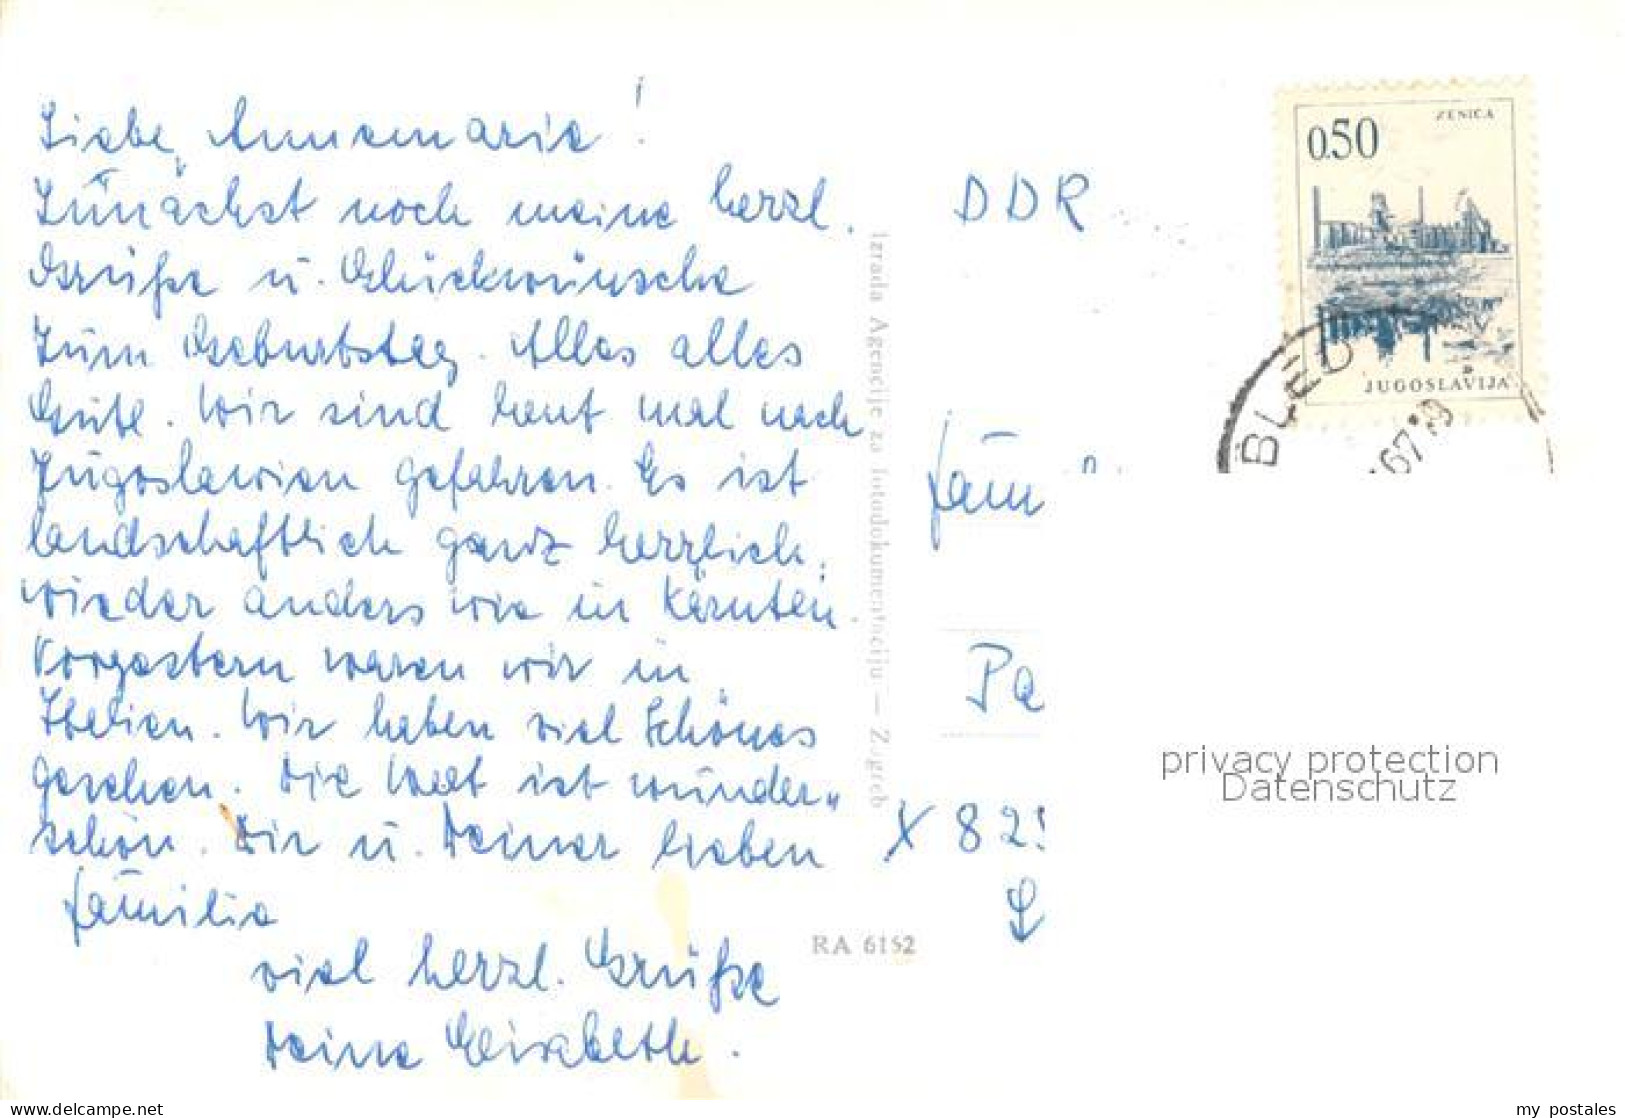 Liebe Annemarie!
Zunächst noch meine herzl.
Grüße u. Glückwünsche
zum Geburtstag. Alles alles
Gute. Wir sind heut mal nach
Jugoslawien gefahren. Es ist
landschaftlich ganz herrlich,
wieder anders wie in Kärnten.
Vorgestern waren wir in
Italien. Wir haben viel Schönes
gesehen. Die Welt ist wunder„
schön. Dir u. Deiner lieben
Familie
viel herzl. Grüße
Deine Elisabeth.
Izrada Agencije za fotodokumentaciju — Zagreb
RA 6152
DDR
Fam
Pa
X 82
ZENICA
0.50
JUGOSLAVIJA
BLED
67 19
privacy protection
Datenschutz
delcampe.net
my_postales